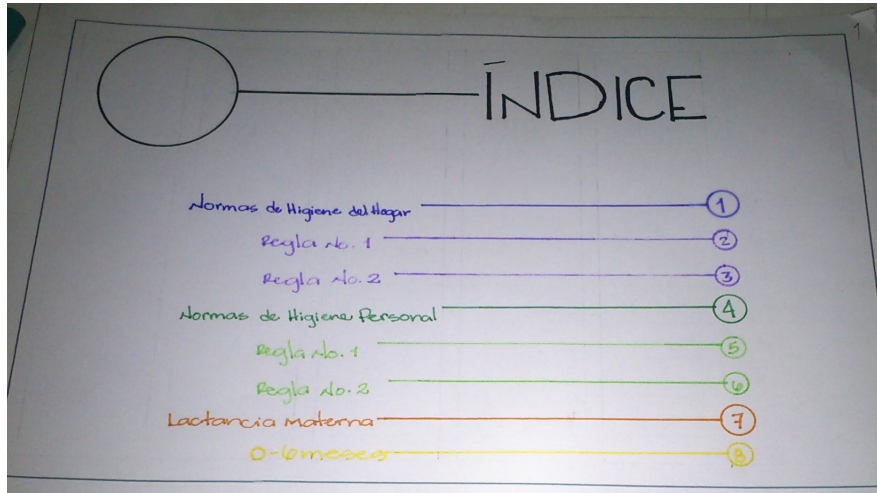 1
ÍNDICE
Normas de Higiene del Hogar 1
Regla No. 1 2
Regla No. 2 3
Normas de Higiene Personal 4
Regla No. 1 5
Regla No. 2 6
Lactancia Materna 7
0-6meses 8